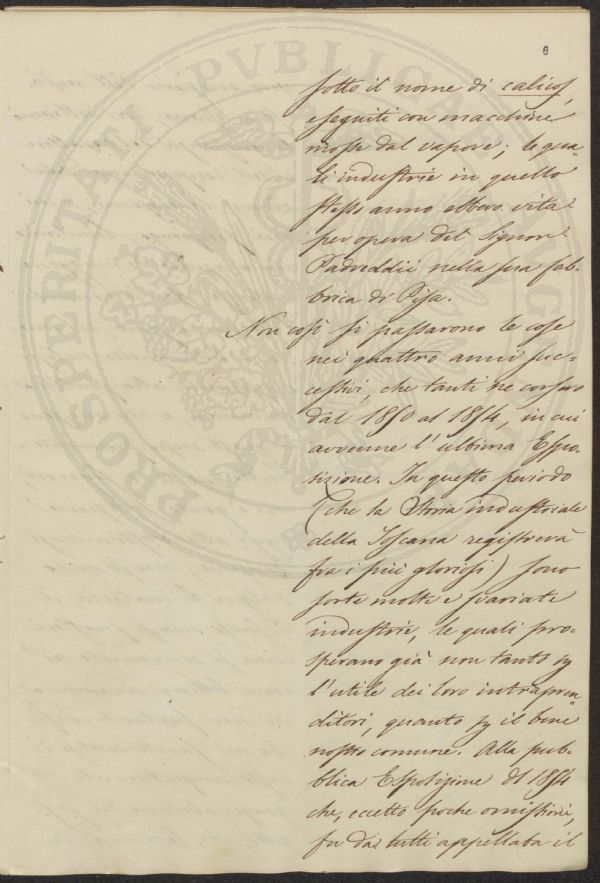 6
sotto il nome di calicos,
eseguiti con macchine
mosse dal vapore; le qua-
li industrie in quello
stesso anno ebbero vita
per opera del Signor
Padreddii nella sua fab-
brica di Pisa.
Non così si passarono le cose
nei quattro anni suc-
cessivi, che tanti ne corsero
dal 1850 al 1854, in cui
avvenne l'ultima Espo-
sizione. In questo periodo
(che la Storia industriale
della Toscana registrerà
fra i più gloriosi) sono
sorte molte e svariate
industrie, le quali pro-
sperano già non tanto p
l'utile dei loro intrapren-
ditori, quanto p il bene
nostro comune. Alla pub-
blica Esposizione del 1854
che, eccetto poche omissioni,
fu da tutti appellata il
PROSPERITATI PVBLICAE